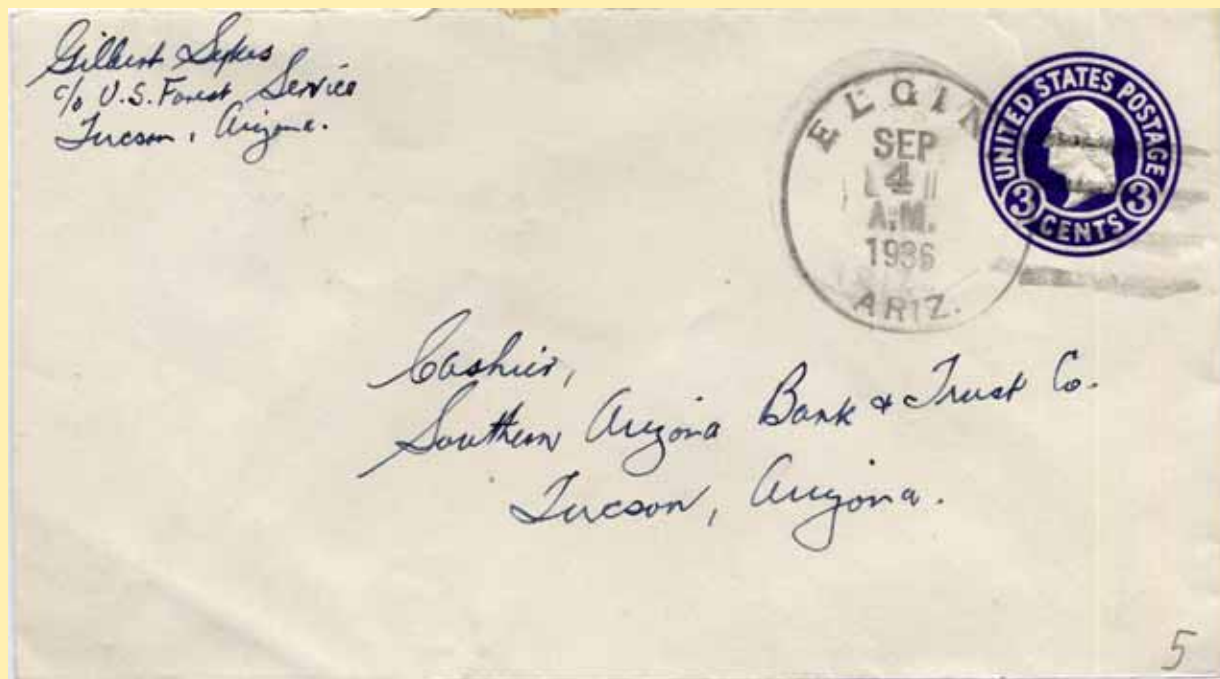 Gilbert Sykes
c/o U.S. Forest Service
Tucson, Arizona.
ELGIN
SEP
4
A.M.
1936
ARIZ.
UNITED STATES POSTAGE
3 3
CENTS
Cashier,
Southern Arizona Bank & Trust Co.
Tucson, Arizona.
5